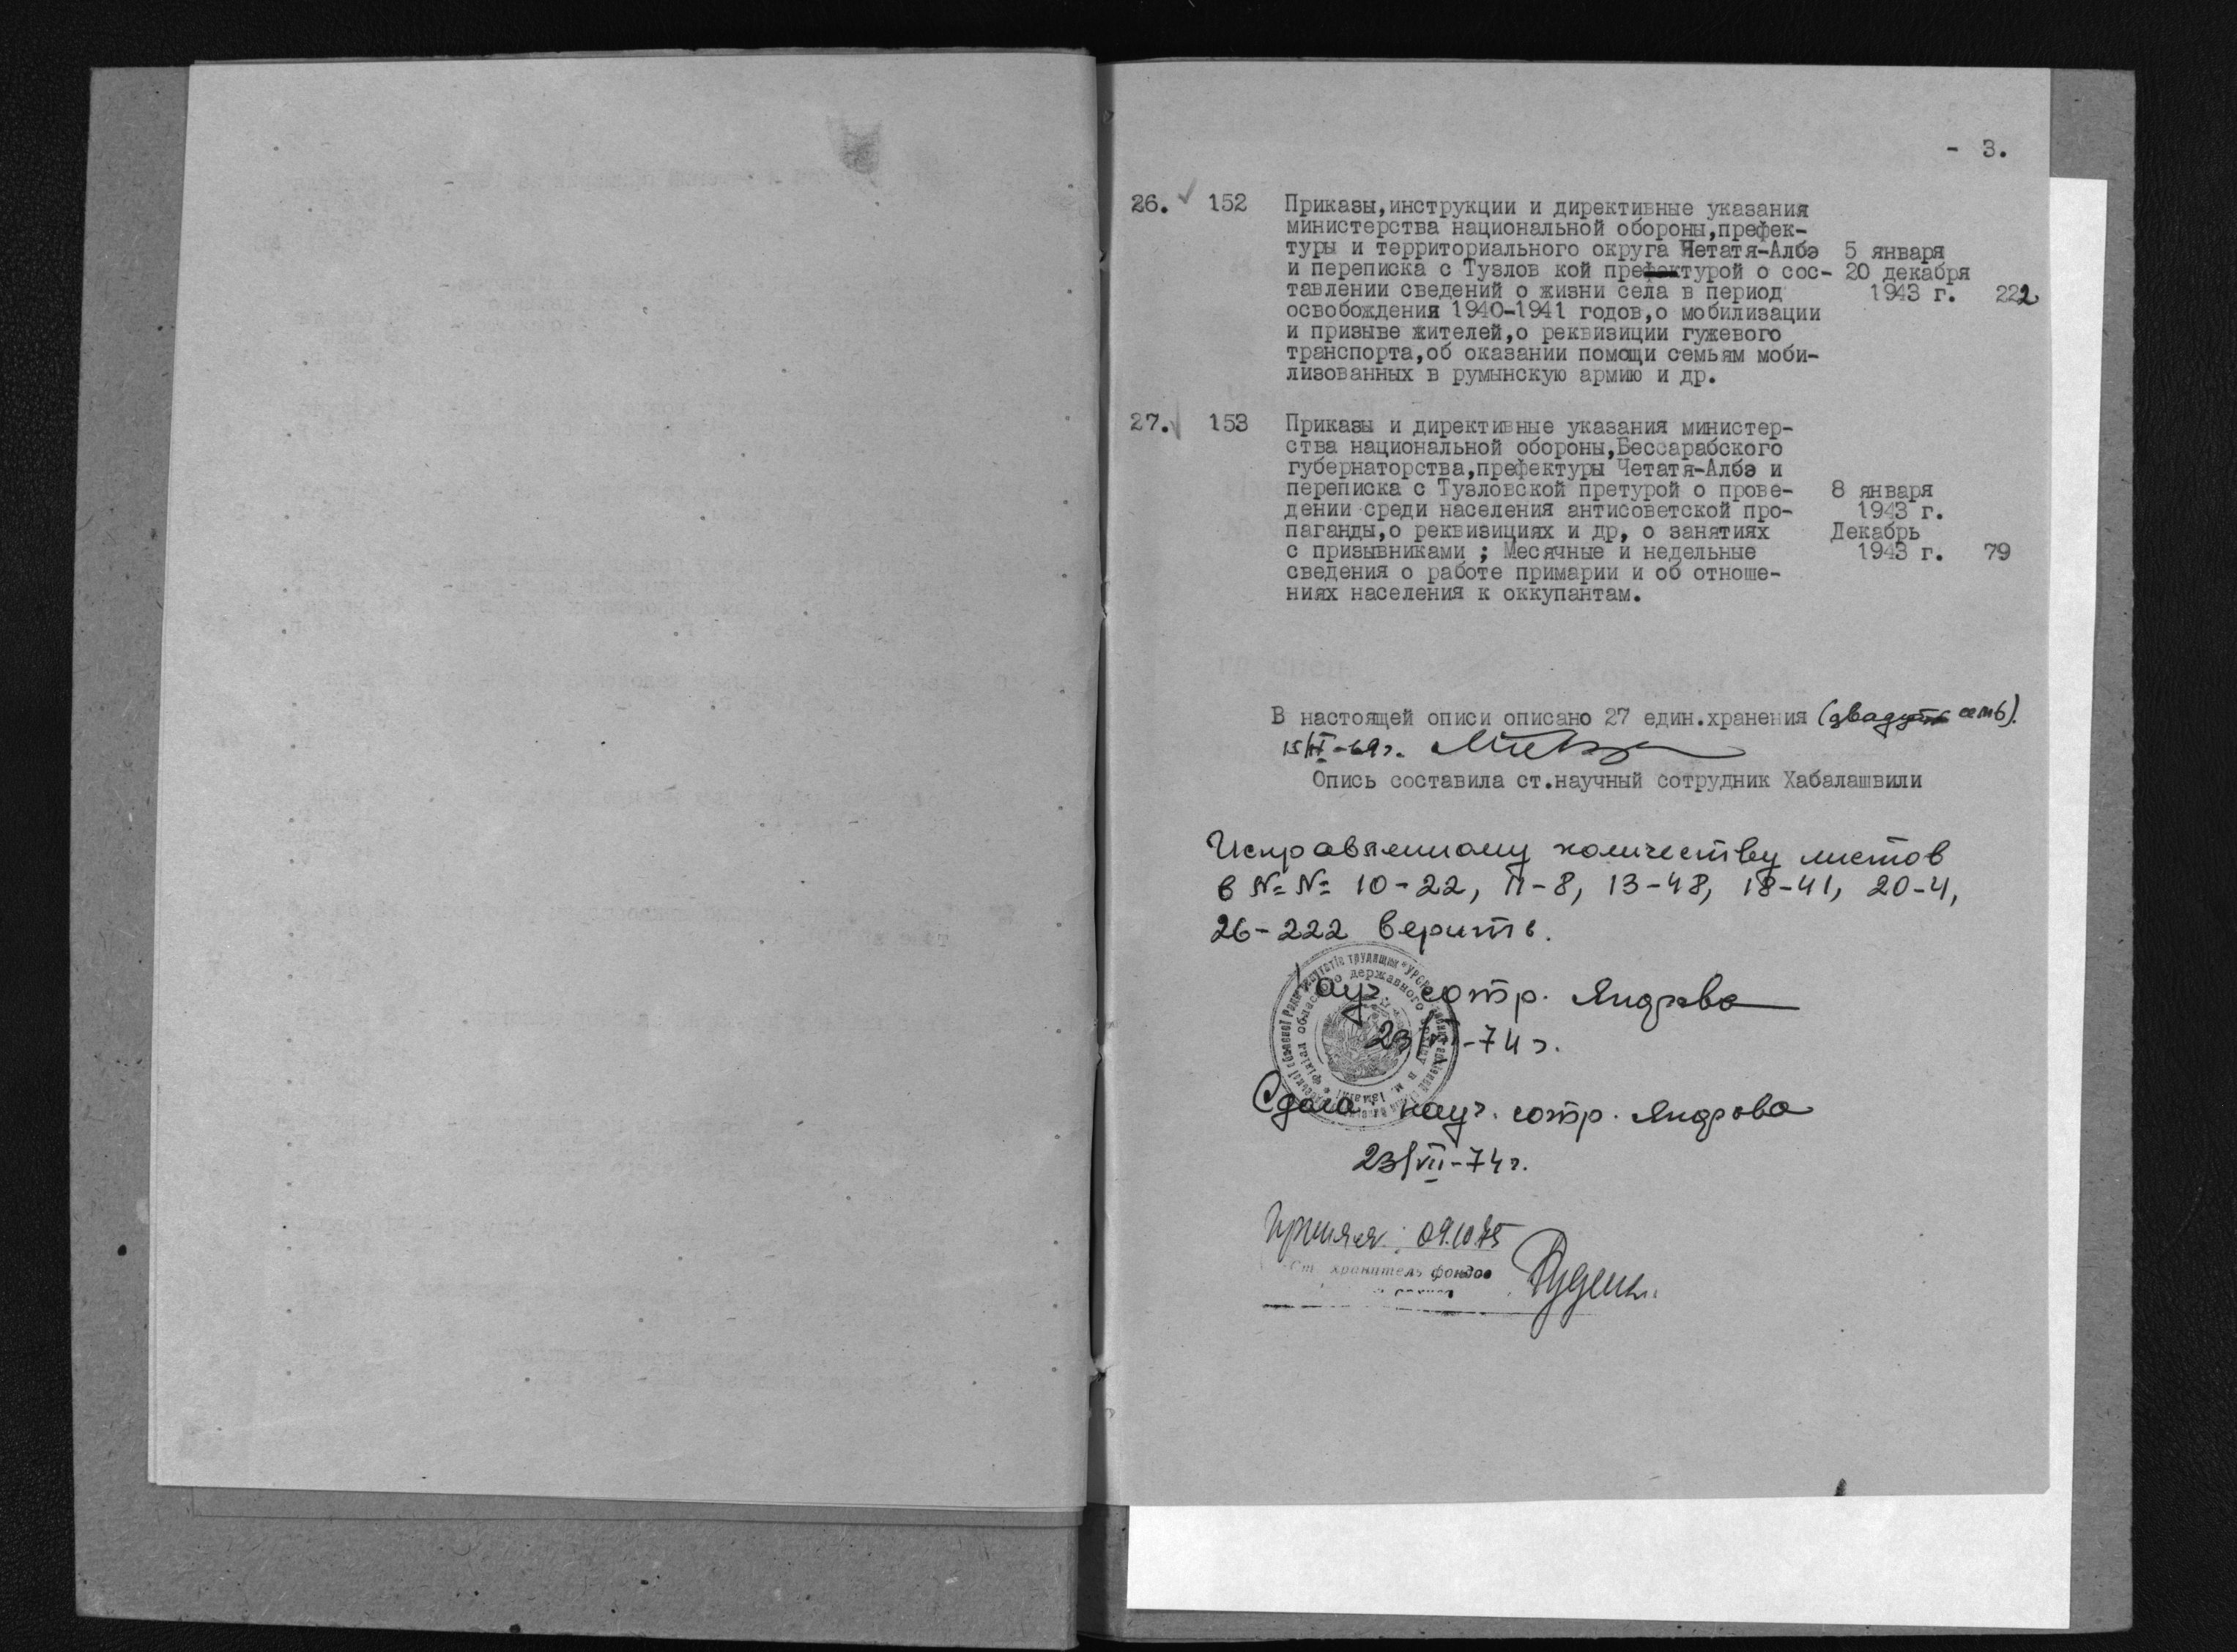 - 3.
26. 152 Приказы,инструкции и директивные указания
министерства национальной обороны,префек-
туры и территориального округа Четатя-Албэ 5 января
и переписка с Тузлов кой претурой о сос- 20 декабря
тавлении сведений о жизни села в период 1943 г. 222
освобождения 1940-1941 годов,о мобилизации
и призыве жителей,о реквизиции гужевого
транспорта,об оказании помощи семьям моби-
лизованных в румынскую армию и др.
27. 153 Приказы и директивные указания министер-
ства национальной обороны,Бессарабского
губернаторства,префектуры Четатя-Албэ и
переписка с Тузловской претурой о прове- 8 января
дении среди населения антисоветской про- 1943 г.
паганды,о реквизициях и др, о занятиях Декабрь
с призывниками ; Месячные и недельные 1943 г. 79
сведения о работе примарии и об отноше-
ниях населения к оккупантам.
В настоящей описи описано 27 един.хранения (двадцать семь).
Опись составила ст.научный сотрудник Хабалашвили
Исправленному количеству листов
в №№ 10-22, 11-8, 13-48, 18-41, 20-4,
26-222 верить.
Науч. сотр. Ядрова
23/VII-74 г.
Сдала: науч. сотр. Ядрова
23/VII-74г.
Приняла: 09.10.75
Ст. хранитель фондов